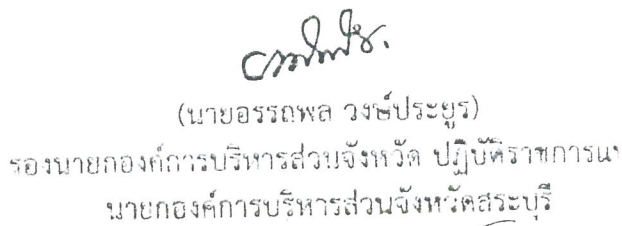 (นายอรรถพล วงษ์ประยูร)
รองนายกองค์การบริหารส่วนจังหวัด ปฏิบัติราชการแ
นายกองค์การบริหารส่วนจังหวัดสระบุรี